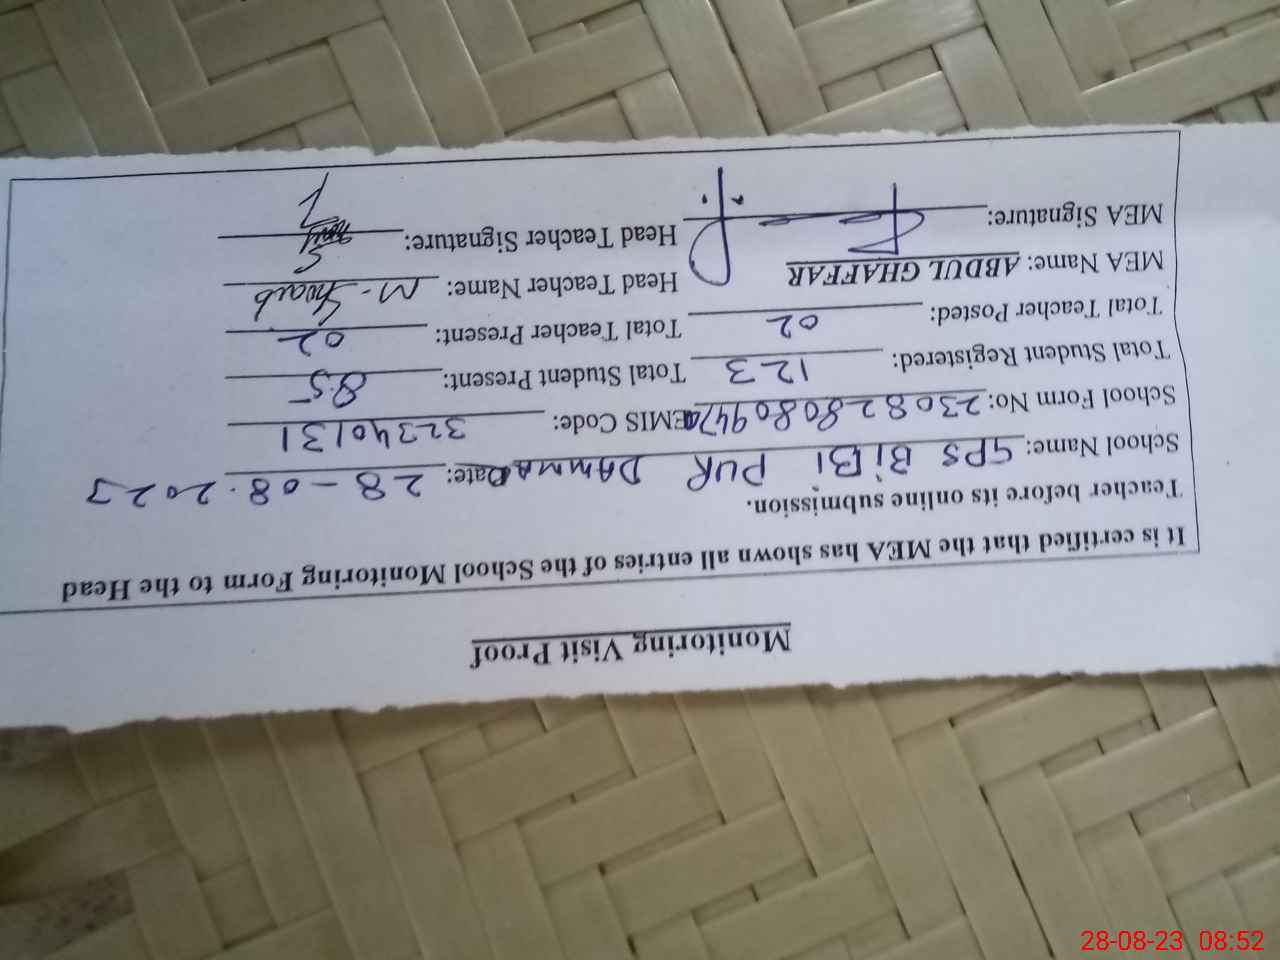 Monitoring Visit Proof
It is certified that the MEA has shown all entries of the School Monitoring Form to the Head
Teacher before its online submission.
School Name: GPS BiBi PUR DAMMA Date: 28-08.2023
School Form No: 230828080947 EMIS Code: 32340131
Total Student Registered: 123 Total Student Present: 85
Total Teacher Posted: 02 Total Teacher Present: 02
MEA Name: ABDUL GHAFFAR Head Teacher Name: M. Shoaib
MEA Signature: Head Teacher Signature:
28-08-23 08:52